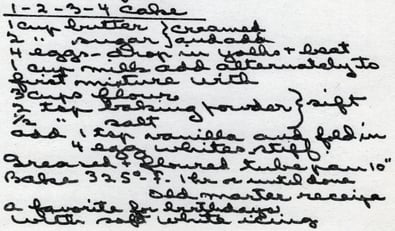 1-2-3-4 Cake
1 cup butter } creamed
2 " sugar } and add
4 eggs - drop in yolks + beat
1 cup milk add alternately to
first mixture with
3 cups flour
2 tsp baking powder } sift
1/2 " salt
add 1 tsp vanilla and fold in
4 egg whites stiff.
Greased & floured tube pan 10"
Bake 325°-F. 1 hr or until done
Old marter receipe
a favorite for birthdays
with soft white icing